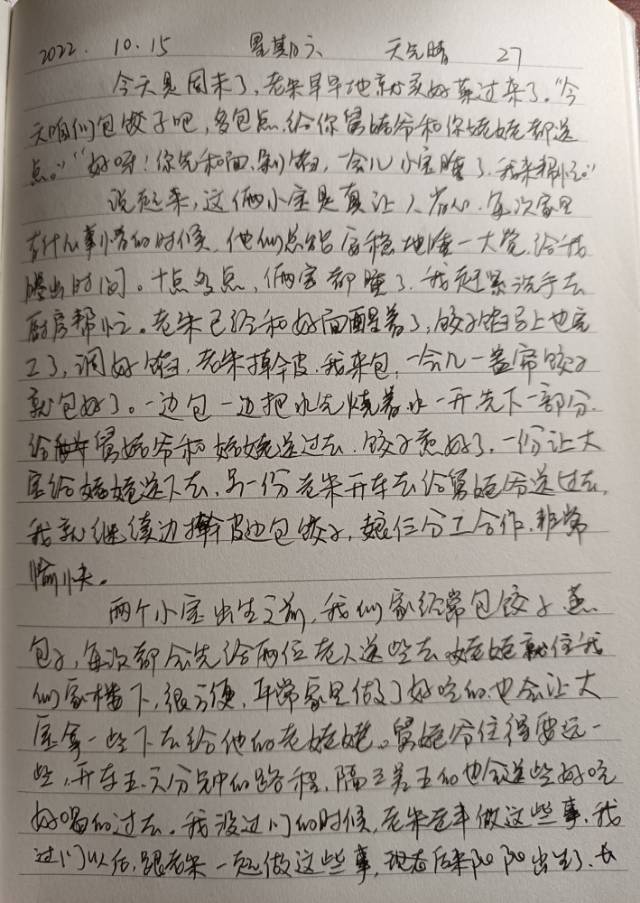 2022. 10. 15 星期六 天气晴 27
今天是周末了,老朱早早地就买好菜过来了。“今
天咱们包饺子吧,多包点,给你舅姥爷和你姥姥都送
点。”“好呀!你先和面、剁馅,一会儿小宝睡了,我来帮忙。”
说起来,这俩小宝是真让人省心,每次家里
有什么事情的时候,他们总能安稳地睡一大觉,给我
腾出时间。十点多点,俩宝都睡了,我赶紧洗手去
厨房帮忙。老朱已经和好面醒着了,饺子馅马上也完
工了,调好馅,老朱擀皮,我来包,一会儿一盖帘饺子
就包好了。一边包一边把水先烧着,水一开先下一部分,
给舅姥爷和姥姥送过去。饺子煮好了,一份让大
宝给姥姥送下去,另一份老朱开车去给舅姥爷送过去,
我就继续边擀皮边包饺子,分工合作,非常
愉快。
两个小宝出生之前,我们家经常包饺子、蒸
包子,每次都会先给两位老人送些去,姥姥就住我
们家楼下,很方便,平常家里做了好吃的也会让大
宝拿一些下去给他的老姥姥。舅姥爷住得要远一
些,开车五、六分钟的路程,隔三差五的也会送些好吃
好喝的过去。我没过门的时候,老朱连年做这些事,我
过门以后,跟老朱一起做这些事,现在后来阳阳出生了,长